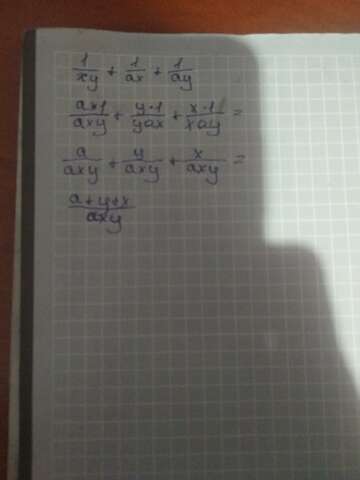 1/xy + 1/ax + 1/ay
a×1/axy + y·1/yax + x·1/xay =
a/axy + y/axy + x/axy =
a+y+x/axy